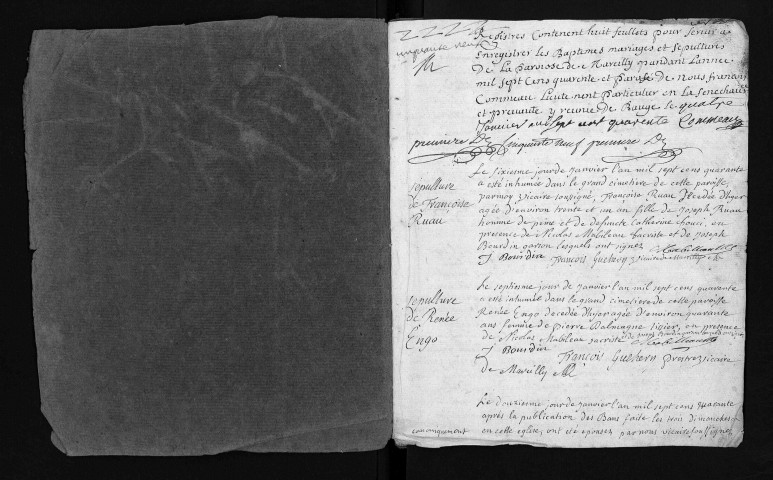 Registres Contenent huit feuillets pour servir a
Enregistrer les Baptemes mariages et sepultures
De La Paroisse de Mareilly pandant Lannee
mil sept Cens quarente et Paraffe de nous françois
Commeau Lieutenent Particulier en La Senechaucee
et prevauté y reunie de Bauge le quatre
Janvier mil sept cent quarente Commeau
premiere
Cinquante neuf premiere
Sepulture
de Françoise
Ruau
Le sixiesme jour de janvier l'an mil sept cens quarante
a esté inhumée dans le grand cimetiere de cette paroisse,
par moy vicaire soussigné, françoise Ruau decedée d'hyer
agée d'environ trente et un an fille de joseph Ruau
homme de peine et de defuncte Catherine en
presence de Nicolas Mabileau sacriste et de joseph
Bourdin garson lesquels ont signez
J Bourdin françois Guehery vicaire de Mareilly
sepulture
de Renée
Engo
Le septiesme jour de janvier l'an mil sept cens quarante
a esté inhumée dans le grand cimetiere de cette paroisse
Renée Engo decedée d'hyer agée d'environ quarante
ans femme de pierre Dalmagne en presence
de Nicolas Mabileau sacriste
J Bourdin
françois Guehery prestre vicaire
de Mareilly
Le douziesme jour de janvier l'an mil sept cens quarante
après la publication des Bans faite les trois dimanches
en cette eglise, ont été epousez par nous vicaire soussigné